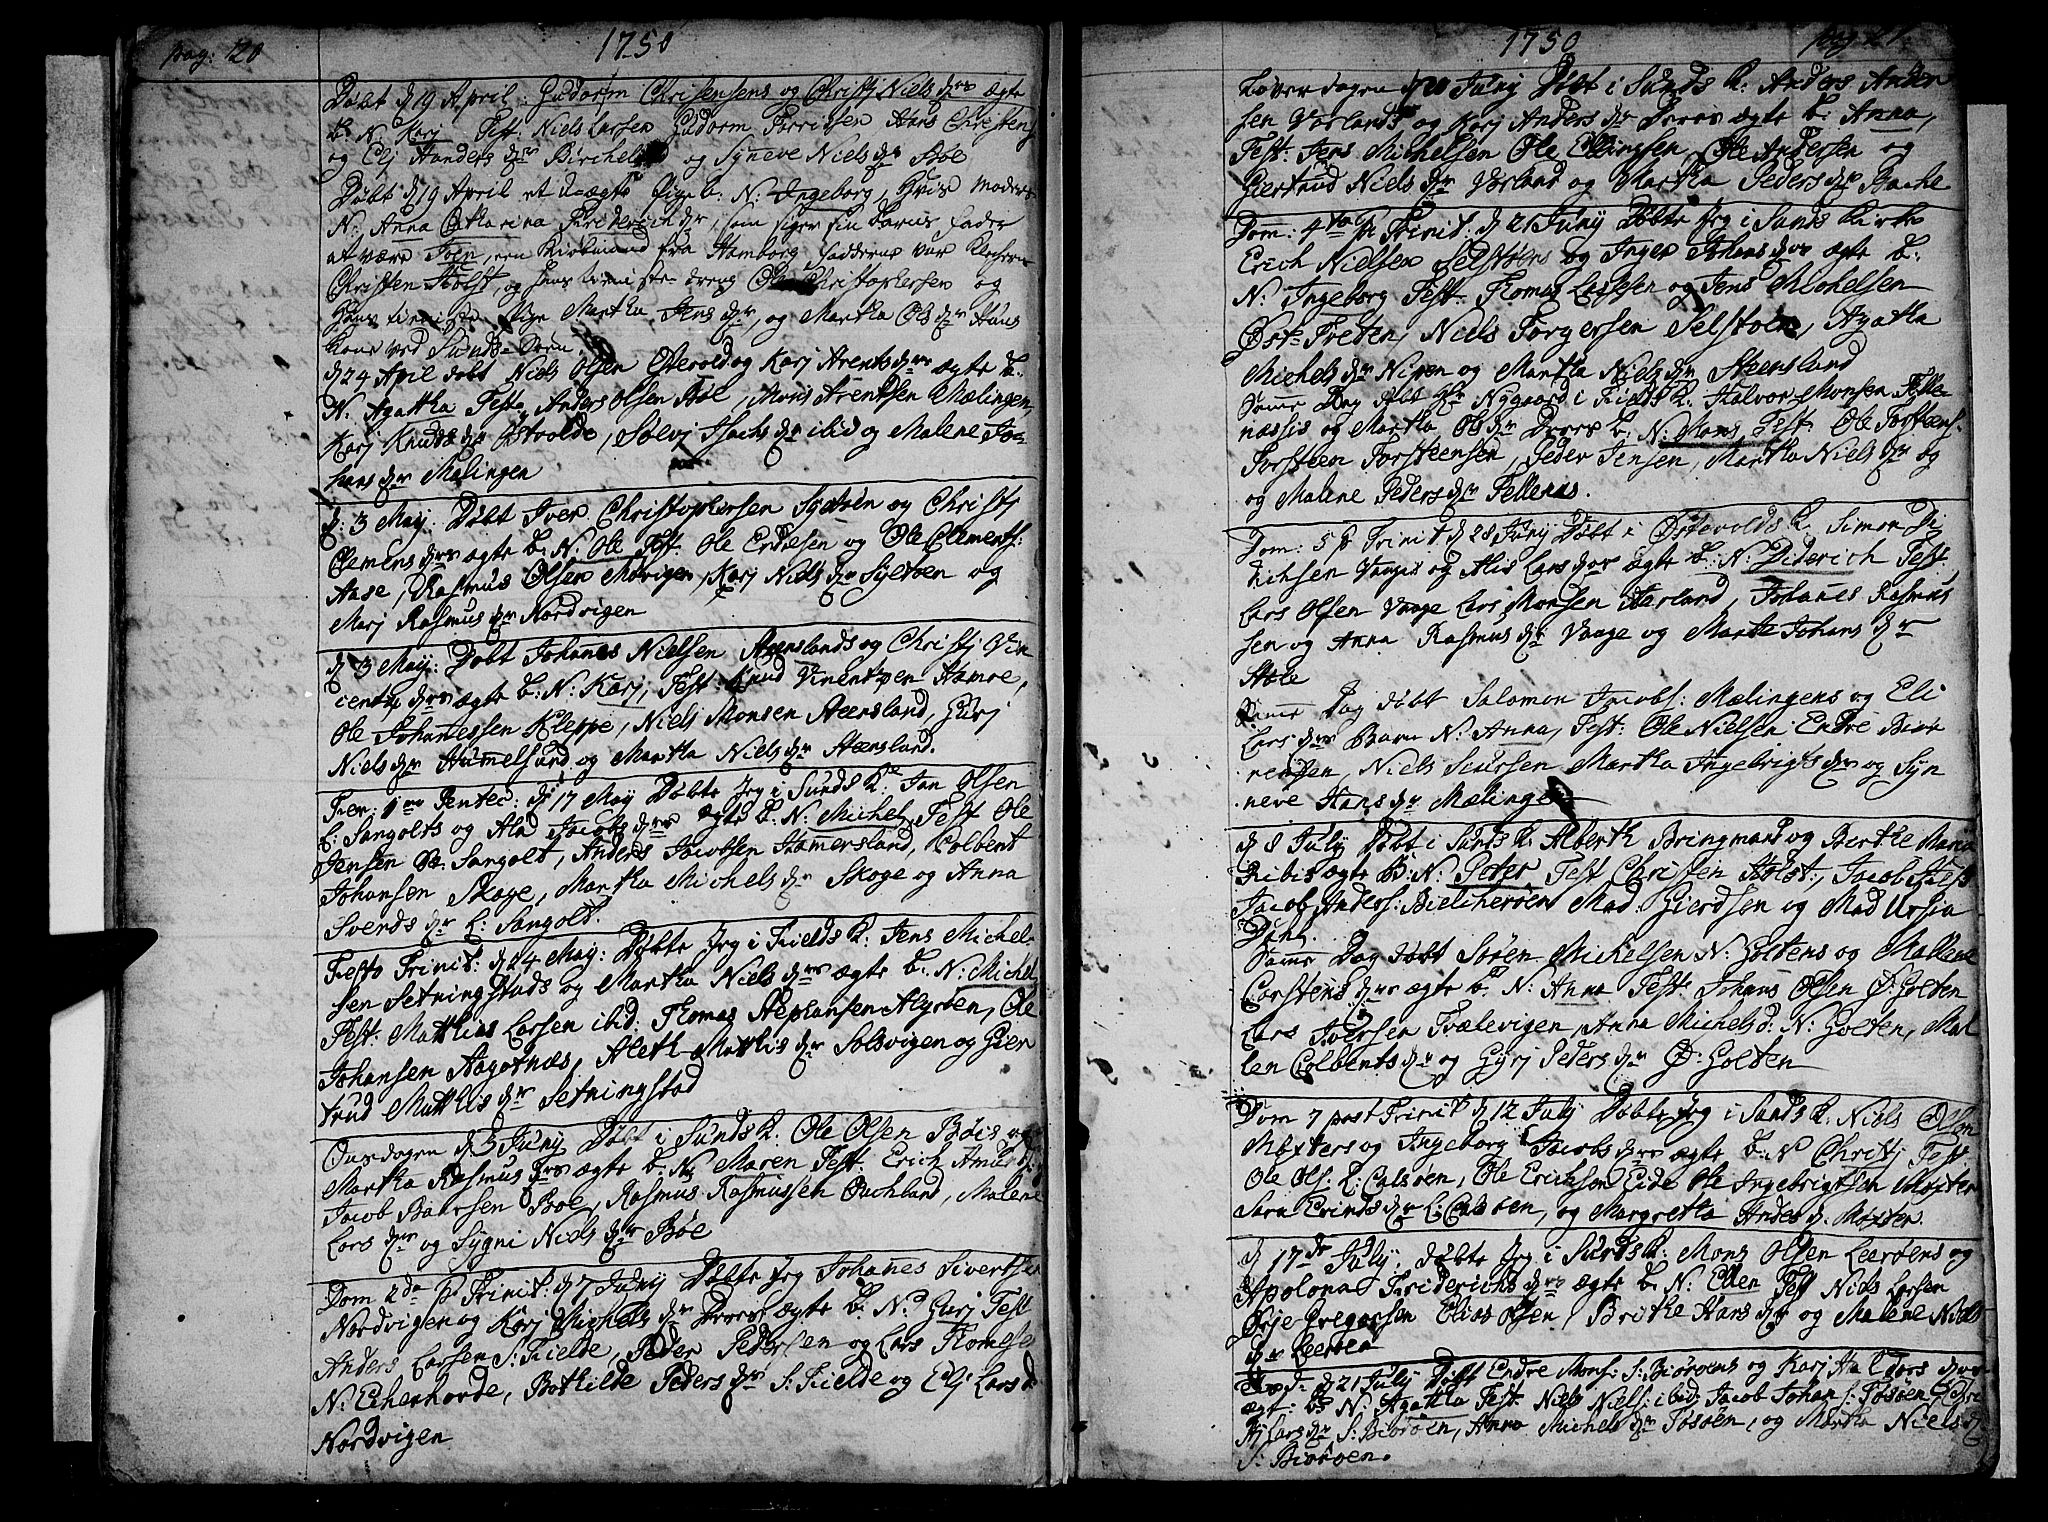 pag: 120
1750
Døbt d 19 April: Gudorm Chrisensens og Christj Niels dr ægte
B: N: Karj Test: Niels Larsen Gudorm Hans Christens
og Elj Handers dr og Syneve Niels dr Bøe
Døbt d 19 April et Uægte Pige b: N: Ingeborg, Hvis Moders
N: Anna Catharina Friderich dr, som siger sin Barns Fader
at være Joen, een fra Hamborg fadderne var
Christen Holst, og hans dreng Christophersen og
Hans Pige Martha Jens dr, og Martha Ols dr Huus
Kone ved Sunds-Øren,
d 24 April døbt Niels Olsen Østevold og Karj Arents dr ægte b:
N: Agatha Test: Anders Olsen Møns Arentsen Mælingen,
Karj Knuds dr Østvolde, Sølvj Isachs dr ibid og Malene Jo-
hans dr Mælingen
d: 3 Maij: Døbt Iver Christophersen Syltøen og Christj
Clemens dr ægte b: N: Ole Test: Ole Endresen og Ole Clements:
Aase, Rasmus Olsen Møvigen, Karj Niels dr Syltøen og
Marj Rasmus dr Nordvigen
d 3 Maij: Døbt Johanes Nielsen Steenslands og Christj Vin
centz dr ægte b: N: Karj, Test: Knud Hamre,
Ole Johanessen Kleppe, Niels Monsen Steensland, Gurj
Niels dr Hummelsund og Martha Niels dr Steensland.
Fer: 1me Pentec: d 17 Maij Døbte Jeg i Sunds K: Jan Olsen
L: Sangolts og Ala Jacobs dr ægte b: N: Michel Test Ole
Jensen St: Sangolt, Anders Jacobsen Hamersland, Colbent
Johansen Skoge, Martha Michels dr Skoge og Anna
Svends dr L: Sangolt.
Festo Trinit: d 24 Maij: Døbte Jeg i Fields K: Jens Michel-
sen Setningstads og Martha Niels dr ægte b: N: Michel
Test: Matthias Larsen ibid: Thomas Stephansen Algrøen, Ole
Johansen Aagotnæs, Aleth Matthis dr Solsvigen og Gier
trud Matthis dr Setningstad
Onsdagen d 3 Juny Døbt i Sunds K: Ole Olsen Bøis og
Martha Rasmus drs ægte b: N: Maren Test: Erich
Jacob Baarsen Bøe, Rasmus Rasmussen Malene
Lars dr og Sygni Niels dr Bøe
Dom 2da p Trinit: d 7 Juny Døbte Jeg Johanes Sivertsen
Nordvigen og Karj Michels dr Deres ægte b: N: Gurj Test
Anders Larsen S: Fielde, Peder Pedersen og Lars Thomesen
N: Ekerhovde, Bothilde Peders dr S: Fielde og Elj Lars d
Nordvigen
1750
pag 121
Løverdagen d 20 Juny Døbt i Sunds K: Anders Ander
sen Vorlands og Karj Anders dr Deres ægte b: Anna,
Test: Jens Michelsen Ole Ellingsen, Ole Andersen og
Giertrud Niels dr Vorland og Martha Peders dr Bache
Dom: 4ta p Trinit: d 21 Juny Døbte Jeg i Sunds Kirke
Erich Nielsen Selstøens og Inger Johans dr ægte b:
N: Ingeborg Test: Thomas Larssen og Jens Michelsen
Øst: Treten, Niels Torgersen Selstøen, Agatha
Michels dr og Martha Niels dr Steensland
Same Dag Hr Nygaard i Fields K: Halvor Monsen Telle
næssis og Martha Ols dr Deres b: N: Mons Test: Ole Torsteens.
Torsteen Torsteensen, Peder Jensen, Martha Niels dr og
og Malene Peders dr Tellenæs.
Dom: 5 p Trinit d 28 Juny Døbt i Østevolds K: Simon Di
dichsen Vaagis og Alis Lars dr ægte b: N: Diderich Test
Lars Olsen Vaage Lars Monsen Harland, Johanes Rasmus
sen og Anna Rasmus dr Vaage og Marthe Johans dr
Stole
Same Dag døbt Salomon Jacobs: Mælingens og Eli
Lars drs Barn N: Anna, Test: Ole Nielsen Endre Biør
nensen, Niels Martha Ingebrigts dr og Syn
neve Hans dr Mælingen
d 8 July Døbt i Sunds K: Alberth Bringmand og Birthe Maria
Ribis ægte B: N: Peter Test Christen Holst, Jacob
Jacob Anders: Bielcherøen Mad: Gierdsen og Mad Ursia
Dihl.
Same Dag døbt Søren Michelsen N: Goltens og Mallene
Carstens dr ægte b. N: Anna Test: Johans Olsen Ø: Golten
Lars Iversen Trælevigen, Anna Michels d: N: Golten, Mal
len Colbents dr og Gyrj Peders dr Ø: Golten
Dom 7 post Trinit d 12 July Døbte Jeg i Sunds K: Niels Olsen
Møxters og Ingeborg Jacobs dr ægte b: N Christj Test
Ole Ols: L: Calsøen, Ole Erichsen Eide Ole Ingebrigtsen Møxter
Sara Erinds dr L: Calsøen, og Margretha Andes d. Møxter.
d 17de July: døbte Jeg i Sunds K: Mons Olsen Leerøens og
Apolona Friderichs dr ægte b: N: Ellen Test Niels Larsen
Gregersen Elias Olsen, Brithe Hans dr og Malene Niels
dr Leerøen
d 21 July Døbt Endre Mons: S: Biørøens og Karj dr
ægt: b: N: Agatha Test Niels Niels: ibid, Jacob Johan:
Lars dr S: Biørøen, Anna Michels dr Tøsøen, og Martha Niels d
S: Biørøen.